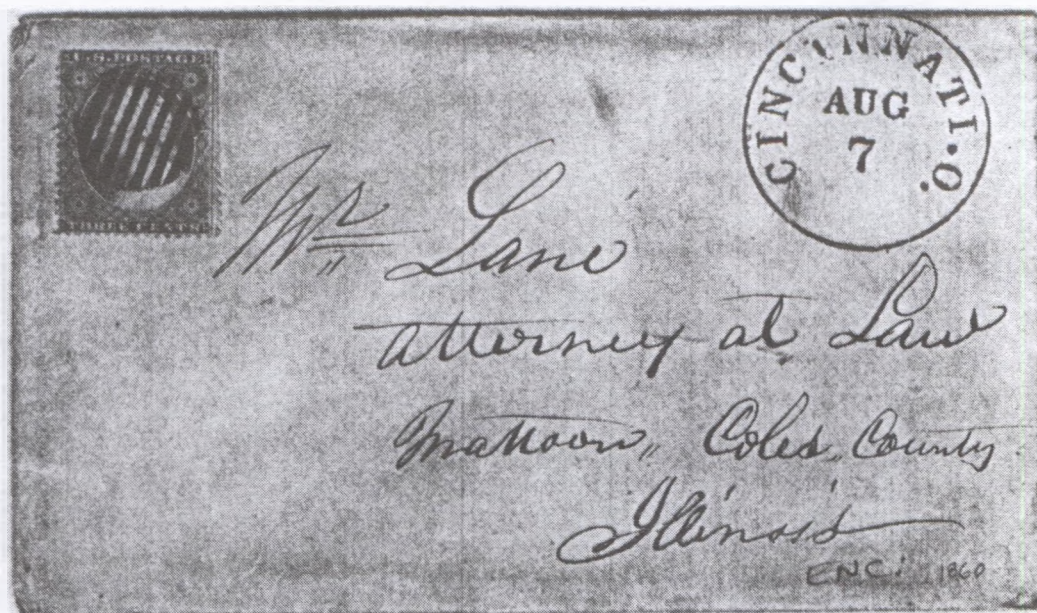 U.S. POSTAGE
THREE CENTS
CINCINNATI.O.
AUG
7
Mr Lane
Attorney at Law
Mattoon, Coles, County
Illinois
ENC: 1860